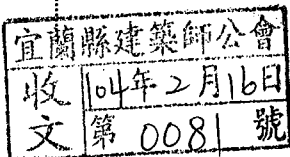 宜蘭縣建築師公會
收文
104年2月16日
第0081號